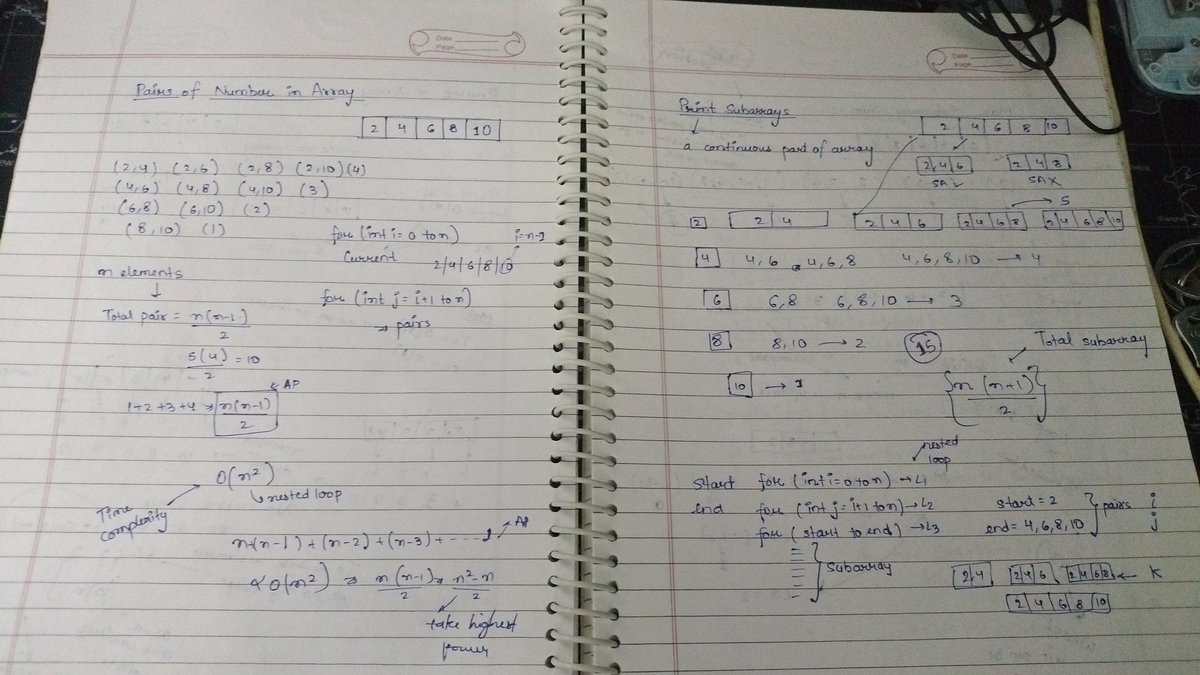 Date
Page
Pairs of Number in Array
2 4 6 8 10
(2,4) (2,6) (2,8) (2,10) (4)
(4,6) (4,8) (4,10) (3)
(6,8) (6,10) (2)
(8,10) (1)
for (int i = 0 to n) i=n-1
Current 2/4/6/8/10
n elements
↓
for (int j = i+1 to n)
→ pairs
Total pair = n(n-1)/2
5(4)/2 = 10
← AP
1+2+3+4 → n(n-1)/2
O(n²)
↳ nested loop
Time complexity
n+(n-1)+(n-2)+(n-3)+----1 → AP
∝ O(n²) ⇒ n(n-1)/2 ⇒ n²-n/2
take highest
power
Date
Page
Print Subarrays
↓
a continuous part of array
2 4 6 8 10
2 4 6 2 4 8
SA ✓ SA X
→ 5
2 2 4 2 4 6 2 4 6 8 2 4 6 8 10
4 4,6 4,6,8 4,6,8,10 → 4
6 6,8 6,8,10 → 3
8 8,10 → 2 15 Total subarray
10 → 1 {n(n+1)/2}
nested
loop
start for (int i = 0 to n) → L1
end for (int j = i+1 to n) → L2 start = 2 } pairs i
for (start to end) → L3 end = 4,6,8,10 j
} subarray
2 4 2 4 6 2 4 6 8 ← K
2 4 6 8 10